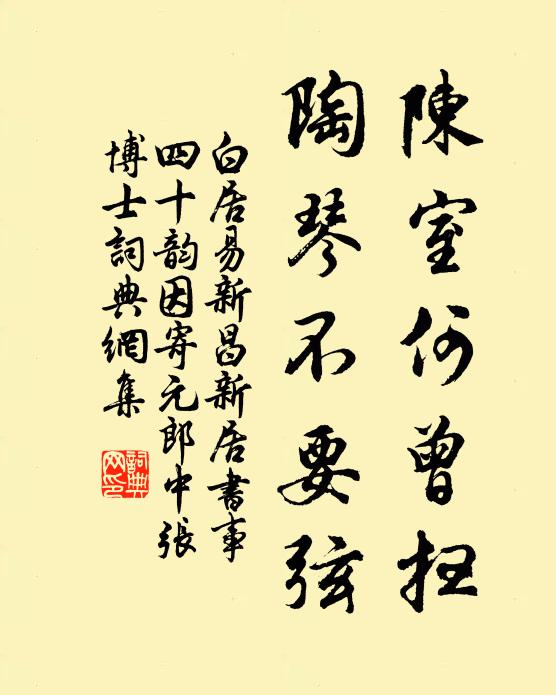 陳室何曾扫
陶琴不要弦
白居易新昌新居書事
四十韵因寄元郎中張
博士詞典網集
詞典
网印